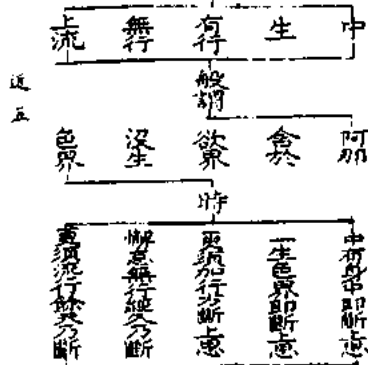 中
生
有行
無行
上流
般謂
阿那
含於
欲界
沒生
色界
時
中有身中即斷惑
一生色界即斷惑
更須加行方斷上惑
懈怠無行經久方斷
更須流行餘處方斷
近五